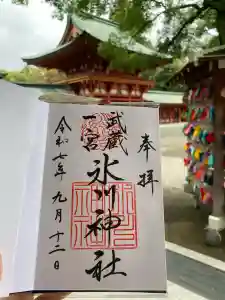 奉拝
武蔵
一宮
氷川神社
令和七年九月十二日